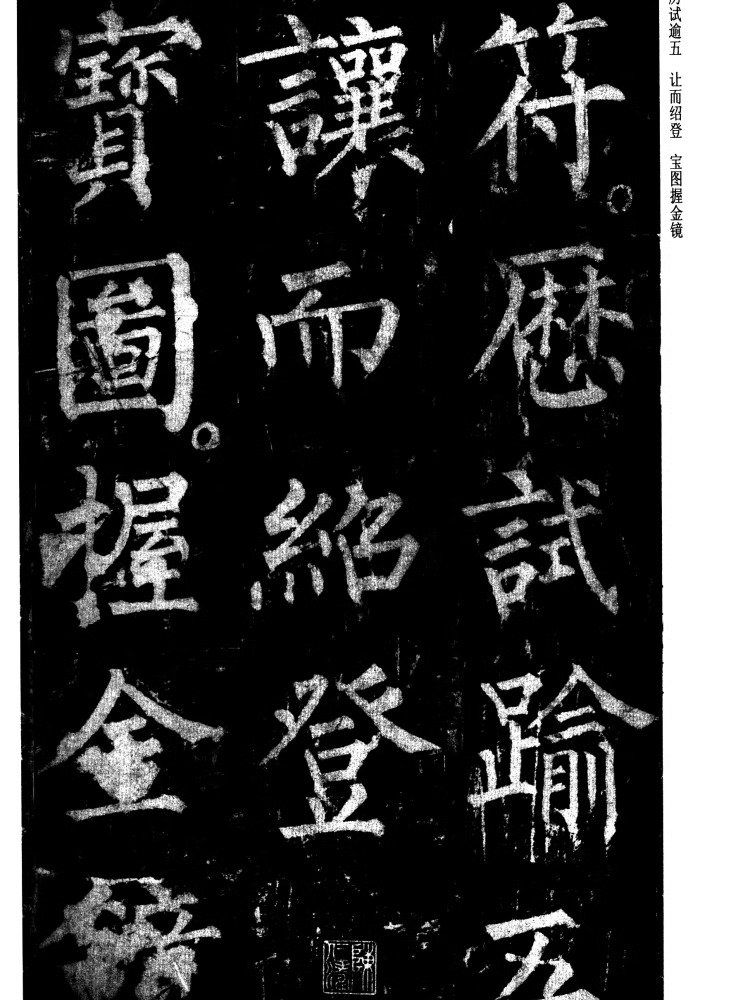 符。歷試踰五
讓而紹登
寶圖。握金鏡
历试逾五 让而绍登 宝图握金镜